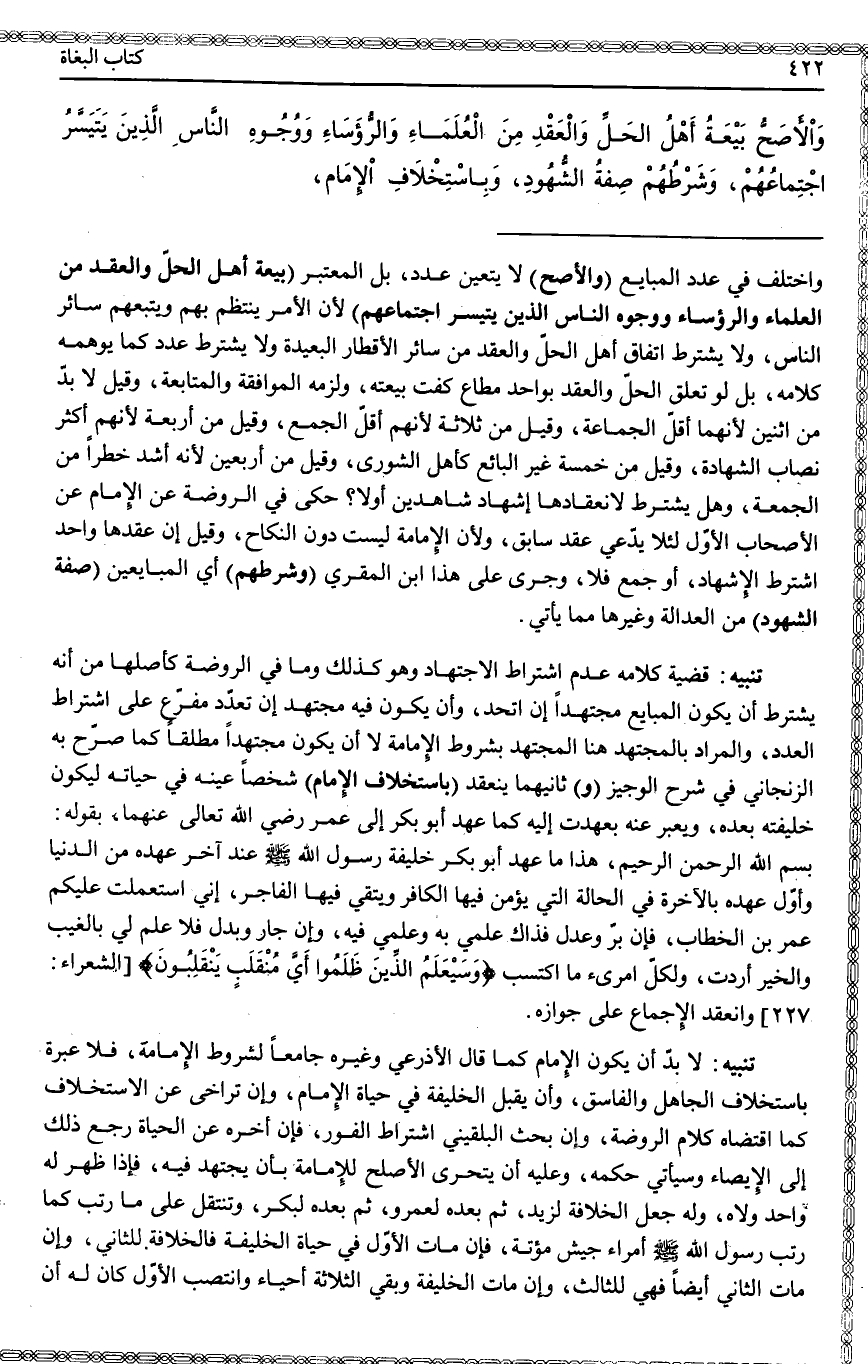 ٤٢٢
كتاب البغاة
وَالْأَصَحُّ بَيْعَةُ أَهْلُ الحَلِّ وَالْعَقْدِ مِنَ الْعُلَمَاءِ وَالرُّؤَسَاءِ وَوُجُوهِ النَّاسِ الَّذِينَ يَتَيَسَّرُ
اجْتِماعُهُمْ، وَشَرْطُهُمْ صِفَةُ الشُّهُودِ، وَبِاسْتِخْلَافِ الْإِمَام،
واختلف في عدد المبايع (والأصح) لا يتعين عدد، بل المعتبر (بيعة أهل الحلّ والعقد من
العلماء والرؤساء ووجوه الناس الذين يتيسر اجتماعهم) لأن الأمر ينتظم بهم ويتبعهم سائر
الناس، ولا يشترط اتفاق أهل الحلّ والعقد من سائر الأقطار البعيدة ولا يشترط عدد كما يوهمه
كلامه، بل لو تعلق الحلّ والعقد بواحد مطاع كفت بيعته، ولزمه الموافقة والمتابعة، وقيل لا بدّ
من اثنين لأنهما أقلّ الجماعة، وقيل من ثلاثة لأنهم أقلّ الجمع، وقيل من أربعة لأنهم أكثر
نصاب الشهادة، وقيل من خمسة غير البائع كأهل الشورى، وقيل من أربعين لأنه أشد خطراً من
الجمعة، وهل يشترط لانعقادها إشهاد شاهدين أولا؟ حكى في الروضة عن الإمام عن
الأصحاب الأوّل لئلا يدّعي عقد سابق، ولأن الإمامة ليست دون النكاح، وقيل إن عقدها واحد
اشترط الإشهاد، أو جمع فلا، وجرى على هذا ابن المقري (وشرطهم) أي المبايعين (صفة
الشهود) من العدالة وغيرها مما يأتي.
تنبيه: قضية كلامه عدم اشتراط الاجتهاد وهو كذلك وما في الروضة كأصلها من أنه
يشترط أن يكون المبايع مجتهداً إن اتحد، وأن يكون فيه مجتهد إن تعدّد مفرّع على اشتراط
العدد، والمراد بالمجتهد هنا المجتهد بشروط الإمامة لا أن يكون مجتهداً مطلقاً كما صرّح به
الزنجاني في شرح الوجيز (و) ثانيهما ينعقد (باستخلاف الإمام) شخصاً عينه في حياته ليكون
خليفته بعده، ويعبر عنه بعهدت إليه كما عهد أبو بكر إلى عمر رضي الله تعالى عنهما، بقوله:
بسم الله الرحمن الرحيم، هذا ما عهد أبو بكر خليفة رسول الله ﷺ عند آخر عهده من الدنيا
وأوّل عهده بالآخرة في الحالة التي يؤمن فيها الكافر ويتقي فيها الفاجر، إني استعملت عليكم
عمر بن الخطاب، فإن برّ وعدل فذاك علمي به وعلمي فيه، وإن جار وبدل فلا علم لي بالغيب
والخير أردت، ولكلّ امرىء ما اكتسب ﴿وَسَيَعْلَمُ الذِّينَ ظَلَمُوا أَيَّ مُنْقَلَبٍ يَنْقَلِبُونَ﴾ [الشعراء:
٢٢٧] وانعقد الإجماع على جوازه.
تنبيه: لا بدّ أن يكون الإمام كما قال الأذرعي وغيره جامعاً لشروط الإمامة، فلا عبرة
باستخلاف الجاهل والفاسق، وأن يقبل الخليفة في حياة الإمام، وإن تراخى عن الاستخلاف
كما اقتضاه كلام الروضة، وإن بحث البلقيني اشتراط الفور، فإن أخره عن الحياة رجع ذلك
إلى الإيصاء وسيأتي حكمه، وعليه أن يتحرى الأصلح للإمامة بأن يجتهد فيه، فإذا ظهر له
واحد ولاه، وله جعل الخلافة لزيد، ثم بعده لعمرو، ثم بعده لبكر، وتنتقل على ما رتب كما
رتب رسول الله ﷺ أمراء جيش مؤتة، فإن مات الأوّل في حياة الخليفة فالخلافة للثاني، وإن
مات الثاني أيضاً فهي للثالث، وإن مات الخليفة وبقي الثلاثة أحياء وانتصب الأوّل كان له أن